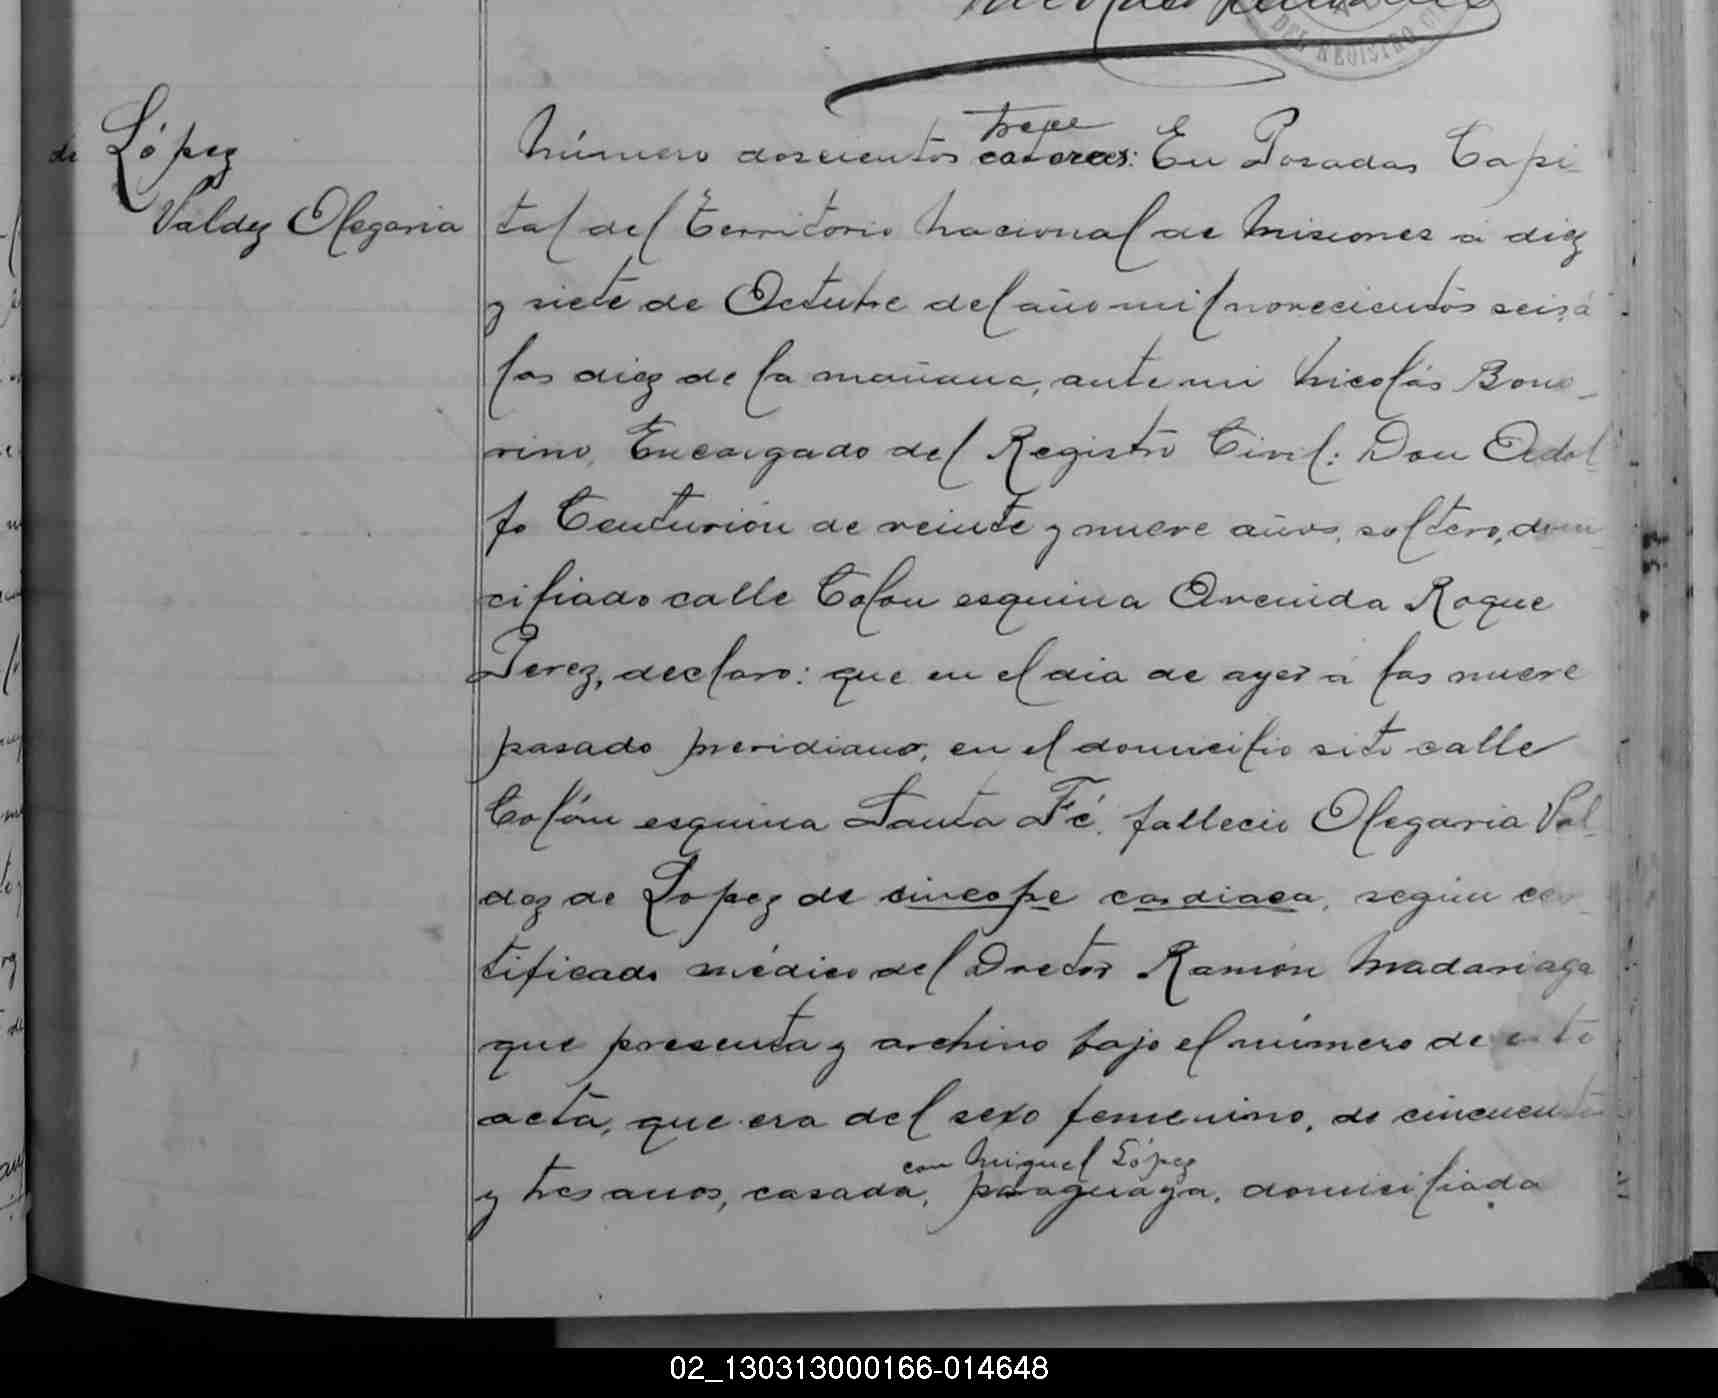 DEL REGISTRO
de López
Valdez Olegaria
trece
Número doscientos catorce: En Posadas Capi-
tal del Territorio Nacional de Misiones a diez
y siete de Octubre del año mil novecientos seis, á
las diez de la mañana, ante mi Nicolás Bono-
rino, Encargado del Registro Civil: Don Adol-
fo Centurión de veinte y nueve años, soltero, domi-
ciliado calle Colon esquina Avenida Roque
Perez, declaro: que en el dia de ayer á las nueve
pasado meridiano, en el domicilio sito calle
Colón esquina Santa Fé, fallecio Olegaria Val-
dez de Lopez de sincope cardiaca, según cer-
tificado médico del Dretor Ramón Madariaga
que presenta y archivo bajo el número de esta
acta, que era del sexo femenino, de cincuenta
con Miguel López
y tres anos, casada, paraguaya, domiciliada
02_130313000166-014648